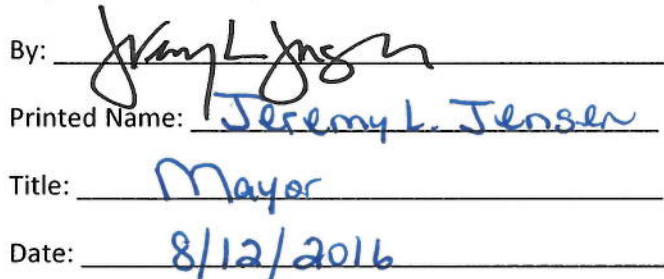 By: Jeremy L Jensen
Printed Name: Jeremy L. Jensen
Title: Mayor
Date: 8/12/2016